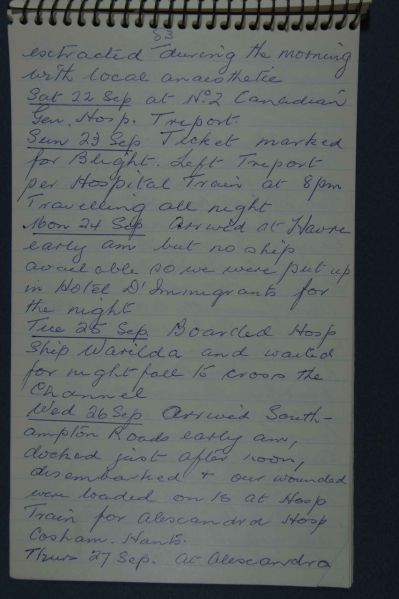 83
extracted during the morning
with local anaesthetic
Sat 22 Sep at No. 2 Canadian
Gen. Hosp. Treport.
Sun 23 Sep Ticket marked
for Blighty. Left Treport
per Hospital Train at 8pm
Travelling all night
Mon 24 Sep Arrived at Havre
early am but no ship
available so we were put up
in Hotel D'Immigrants for
the night
Tue 25 Sep. Boarded Hosp
Ship Warilda and waited
for nightfall to cross the
Channel
Wed 26 Sep Arrived South-
ampton Roads early am,
docked just after noon,
disembarked & our wounded
were loaded on to at Hosp
Train for Alexandra Hosp
Cosham. Hants.
Thurs 27 Sep. At Alexandra